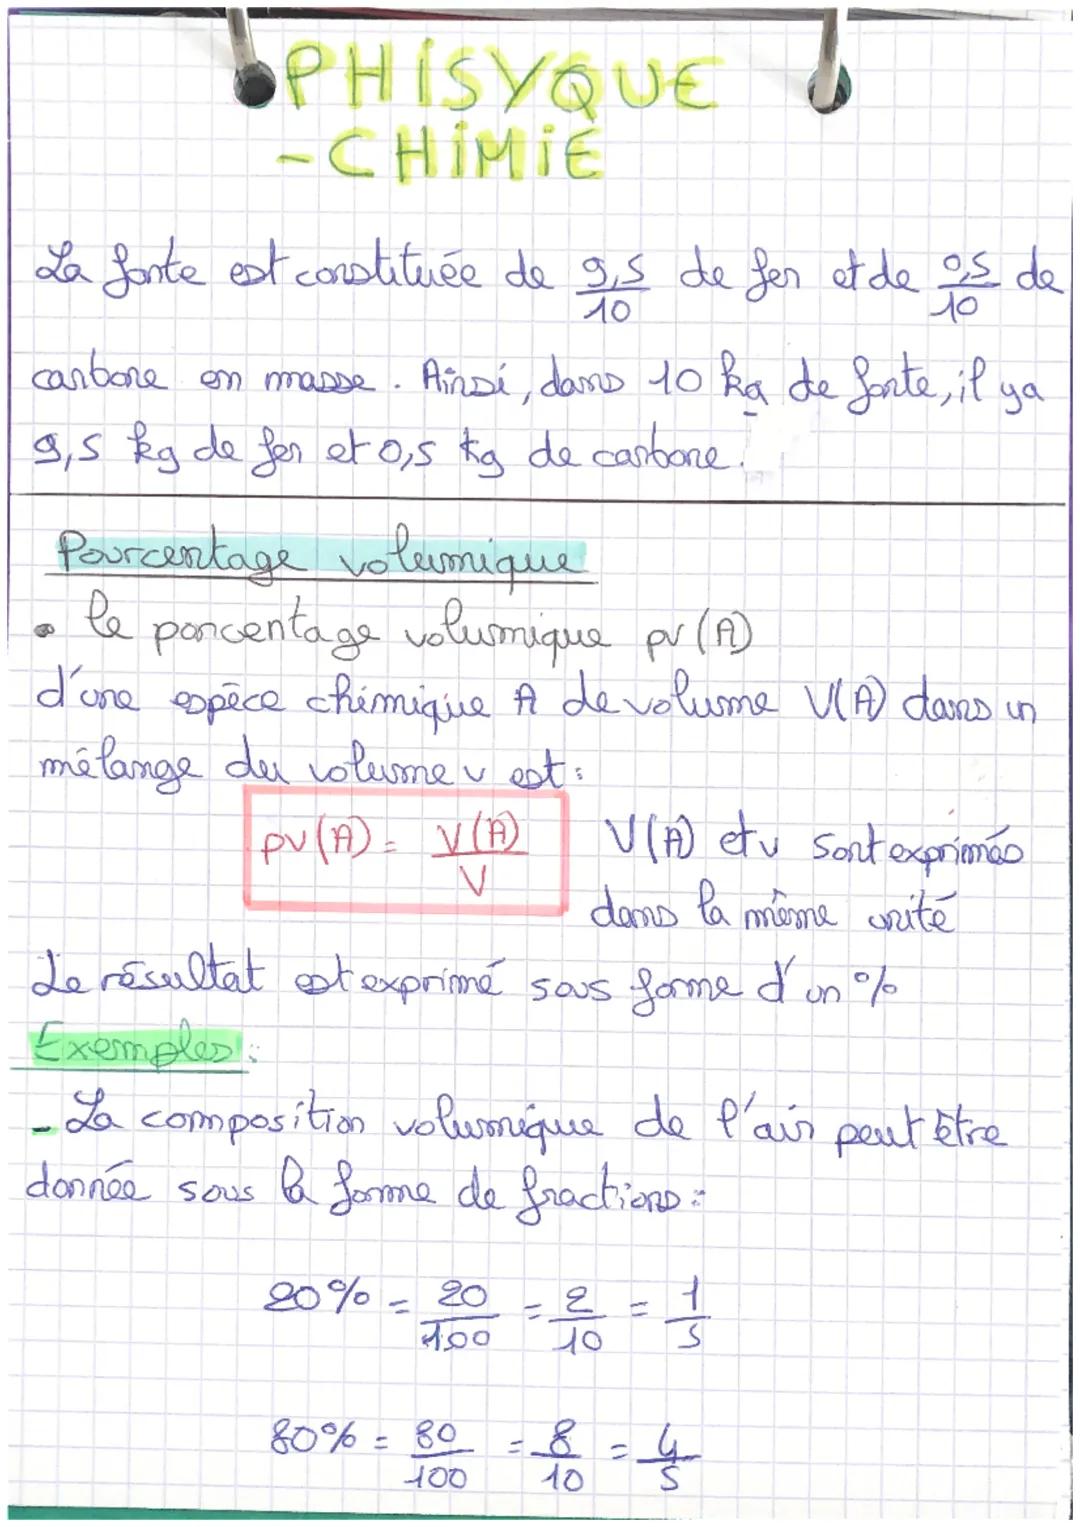 PHISYQUE
-CHIMIE
La fonte est constituée de 9,5/10 de fer et de 0,5/10 de
carbone en masse. Ainsi, dans 10 kg de fonte, il y a
9,5 kg de fer et 0,5 kg de carbone.
Pourcentage volumique
• le porcentage volumique pv (A)
d'une espèce chimique A de volume V(A) dans un
mélange du volume v est :
pv (A) = V(A)/V V(A) et v sont exprimés
dans la même unité
Le résultat est exprimé sous forme d'un %
Exemples :
- La composition volumique de l'air peut être
donnée sous la forme de fractions :
20% = 20/100 = 2/10 = 1/5
80% = 80/100 = 8/10 = 4/5